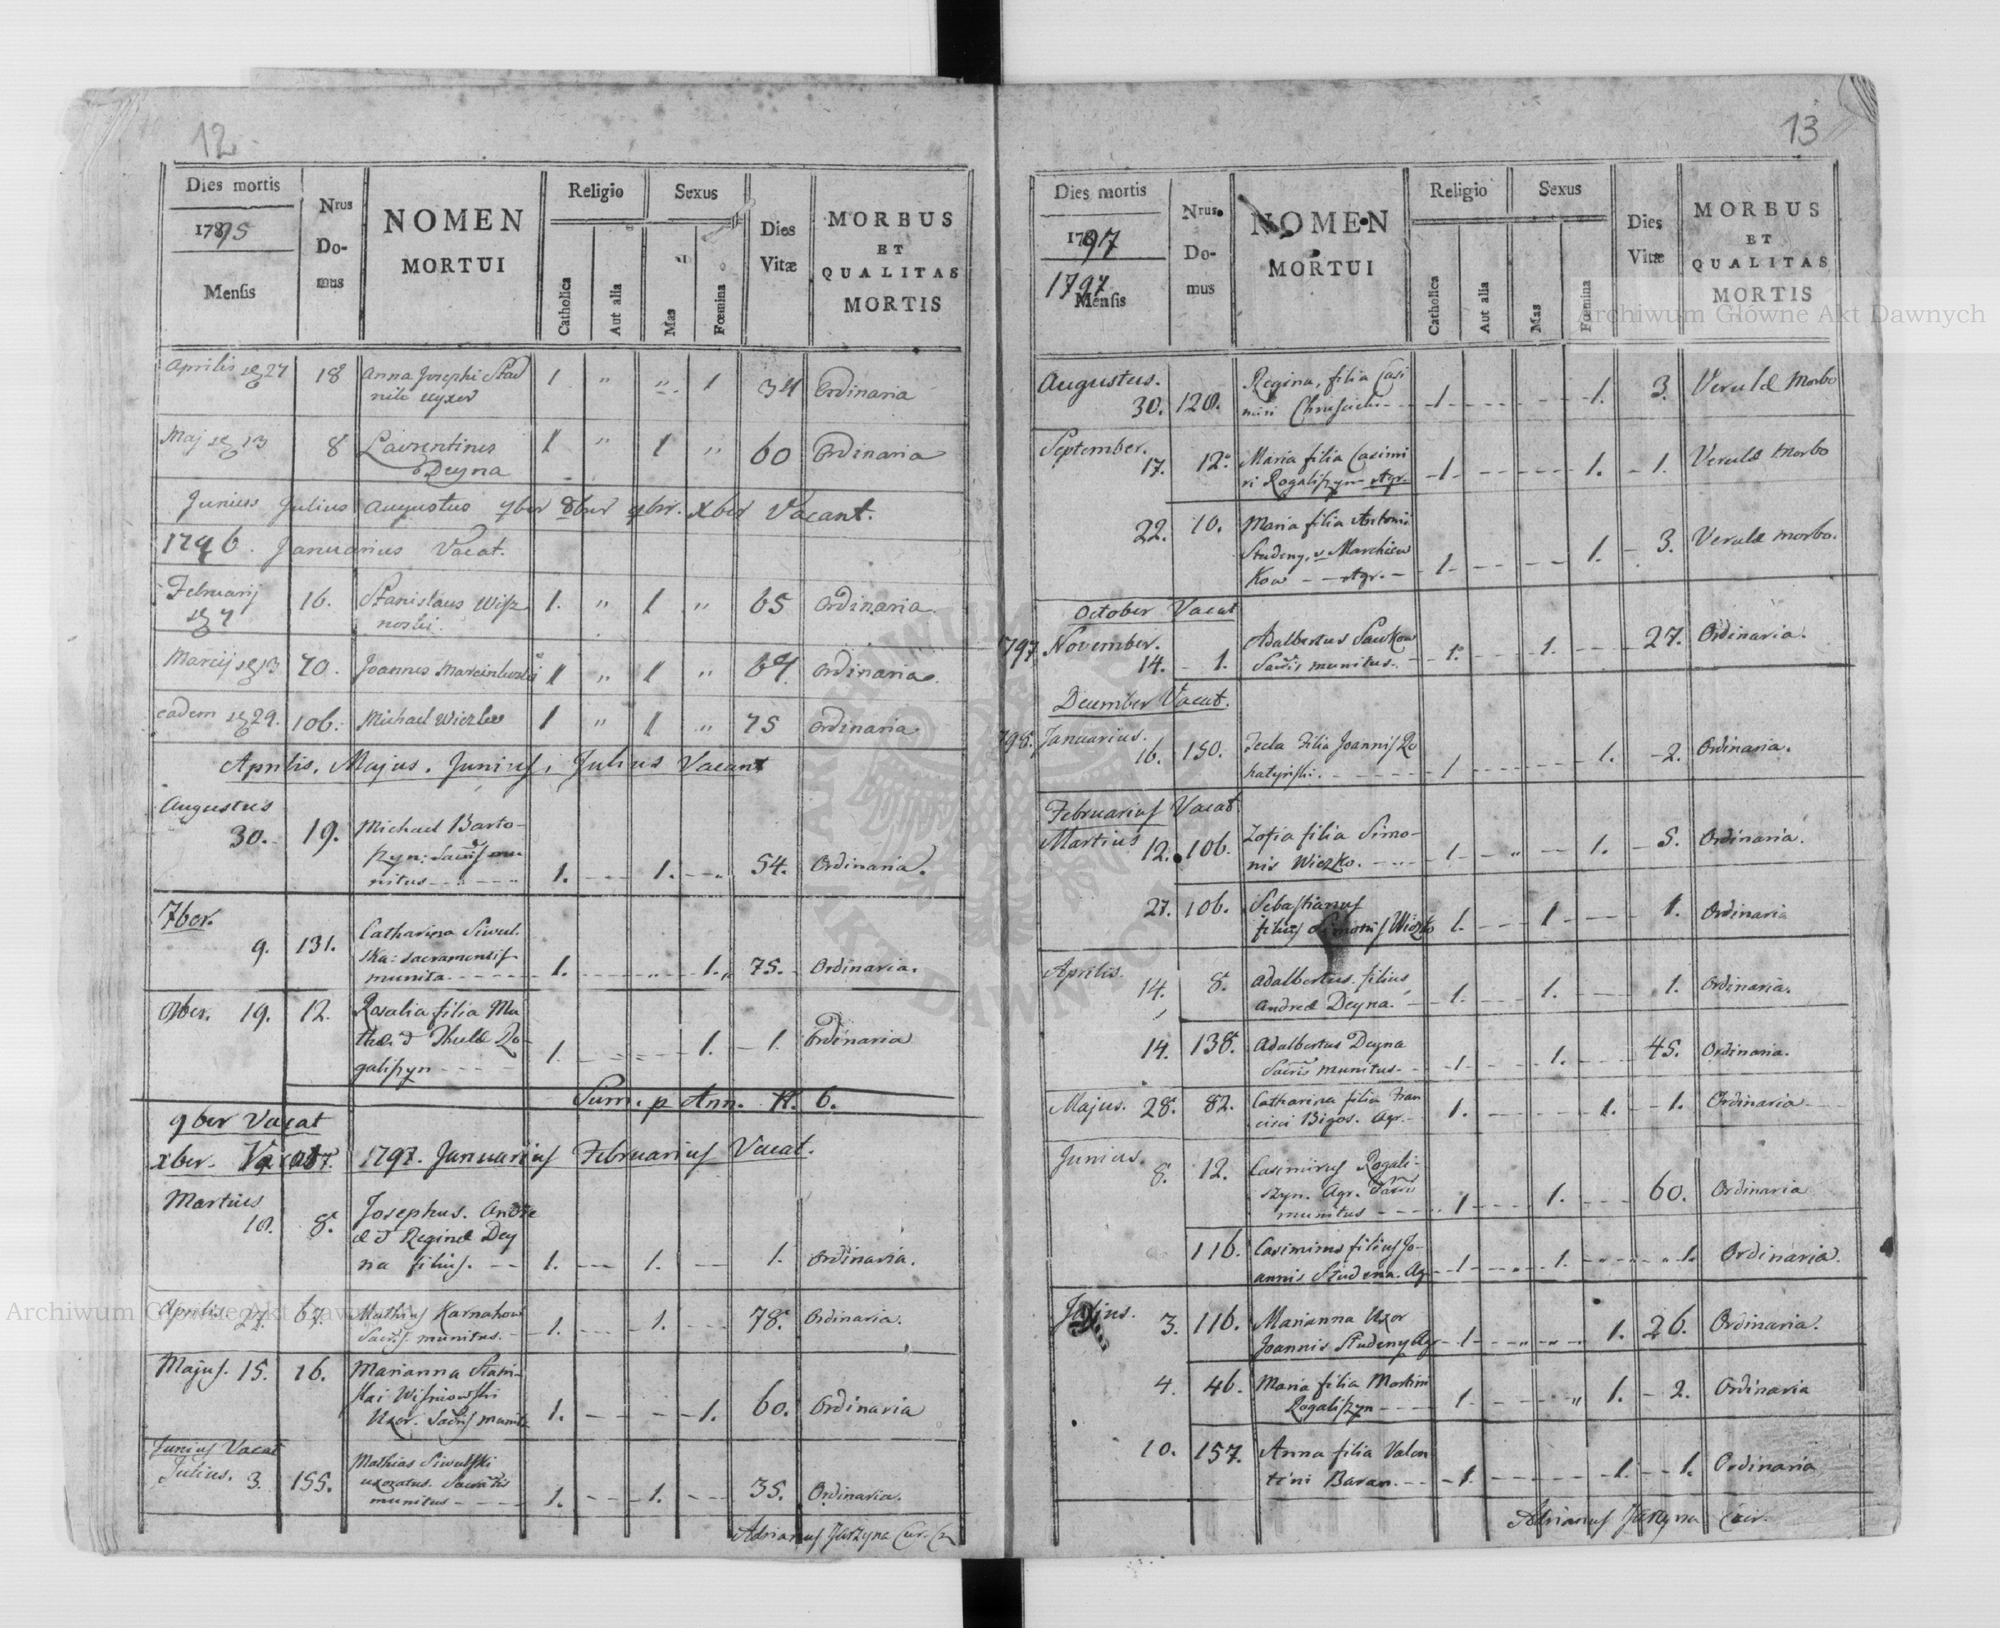 12
Dies mortis
1795
Mensis
Nrus
Do-
mus
NOMEN
MORTUI
Religio
Catholica
Aut alia
Sexus
Mas
Fœmina
Dies
Vitæ
MORBUS
ET
QUALITAS
MORTIS
Aprilis 27 18 Anna Josephi 1 " " 1 34 Ordinaria
uxor
Maj 13 8 Laurentius 1 " 1 " 60 Ordinaria
Deyna
Junius Julius Augustus 7ber 8ber 9br. Xber Vacant.
1796. Januarius Vacat.
Februarij 16. Stanislaus Wisz 1. " 1 " 65 Ordinaria
7 noski.
Marcij 13 70. Joannes Marcinkoski 1 " 1 " 64 Ordinaria.
eadem 29. 106. Michael Wiczko 1 " 1 " 75 Ordinaria
Aprilis. Majus. Junius, Julius Vacant
Augustus
30. 19. Michael Barto-
szyn: Sacris mu-
nitus 1. 1. 54. Ordinaria.
7ber.
9. 131. Catharina Siwul-
ska: sacramentis
munita. 1. 1. 75. Ordinaria.
19. 12. Rosalia filia Ma
thæ & Theclæ Ro-
galiszyn 1. 1. 1. Ordinaria
Sum. p Ann. 6.
9ber Vacat
xber. Vacat. 1797. Januarius Februarius Vacat.
Martius
18. 8. Josephus. Andre
æ & Reginæ Dey
na filius. 1. 1. 1. Ordinaria.
Aprilis 27. 67. Mathias Karnakow
Sacris. munitus. 1. 1. 78. Ordinaria.
Majus. 15. 16. Marianna Stani-
slai Wisniowski
Uxor. Sacris munita 1. 1. 60. Ordinaria
Junius Vacat
Julius. 3. 155. Mathias Siwulski
uxoratus. Sacris
munitus 1. 1. 35. Ordinaria.
Adrianus Jarzyna Cur.
13
Dies mortis
1797
1797
Mensis
Nrus.
Do-
mus
NOMEN
MORTUI
Religio
Catholica
Aut alia
Sexus
Mas
Fœmina
Dies
Vitæ
MORBUS
ET
QUALITAS
MORTIS
Archiwum Główne Akt Dawnych
Augustus.
30. 128. Regina, filia Casi
miri 1 1. 3. Verulæ Morbo
September.
17. 12. Maria filia Casimi
ri Rogaliszyn Agr. 1 1. 1. Verulæ Morbo
22. 10. Maria filia Antonii
Studeny, v Marchiew
kow Agr. 1. 1. 3. Verulæ morbo.
October Vacat
1797 November.
14. 1. Adalbertus Sawkow
Sacris munitus. 1. 1. 27. Ordinaria.
December Vacat.
798. Januarius.
16. 150. Tecla Filia Joannis Ro
hatyński. 1 1. 2. Ordinaria.
Februarius Vacat
Martius 12. 106. Zofia filia Simo-
nis Wiczko. 1 " 1. 5. Ordinaria.
27. 106. Sebastianus
filius Simonis Wiczko 1. 1 1. Ordinaria
Aprilis.
14. 8. Adalbertus. filius
Andreæ Deyna. 1. 1. 1. Ordinaria.
14. 138. Adalbertus Deyna
Sacris munitus. 1 1. 45. Ordinaria.
Majus. 28. 82. Catharina filia Fran
cisci Bigos. Agr. 1. 1. 1. Ordinaria
Junius.
8. 12. Casimirus Rogali-
szyn. Agr. Sacris
munitus 1 1. 60. Ordinaria
116. Casimirus filius Jo-
annis Studena. Ag 1 1. 1. Ordinaria.
Julius. 3. 116. Marianna Uxor
Joannis Studeny Agr 1 1. 26. Ordinaria.
4. 46. Maria filia Martini
Rogaliszyn 1 1. 2. Ordinaria
10. 157. Anna filia Valen
tini Baran. 1. 1. 1. Ordinaria
Adrianus Jarzyna
Archiwum Główne Akt Dawnych
ARCHIWUM
AKT DAWNYCH